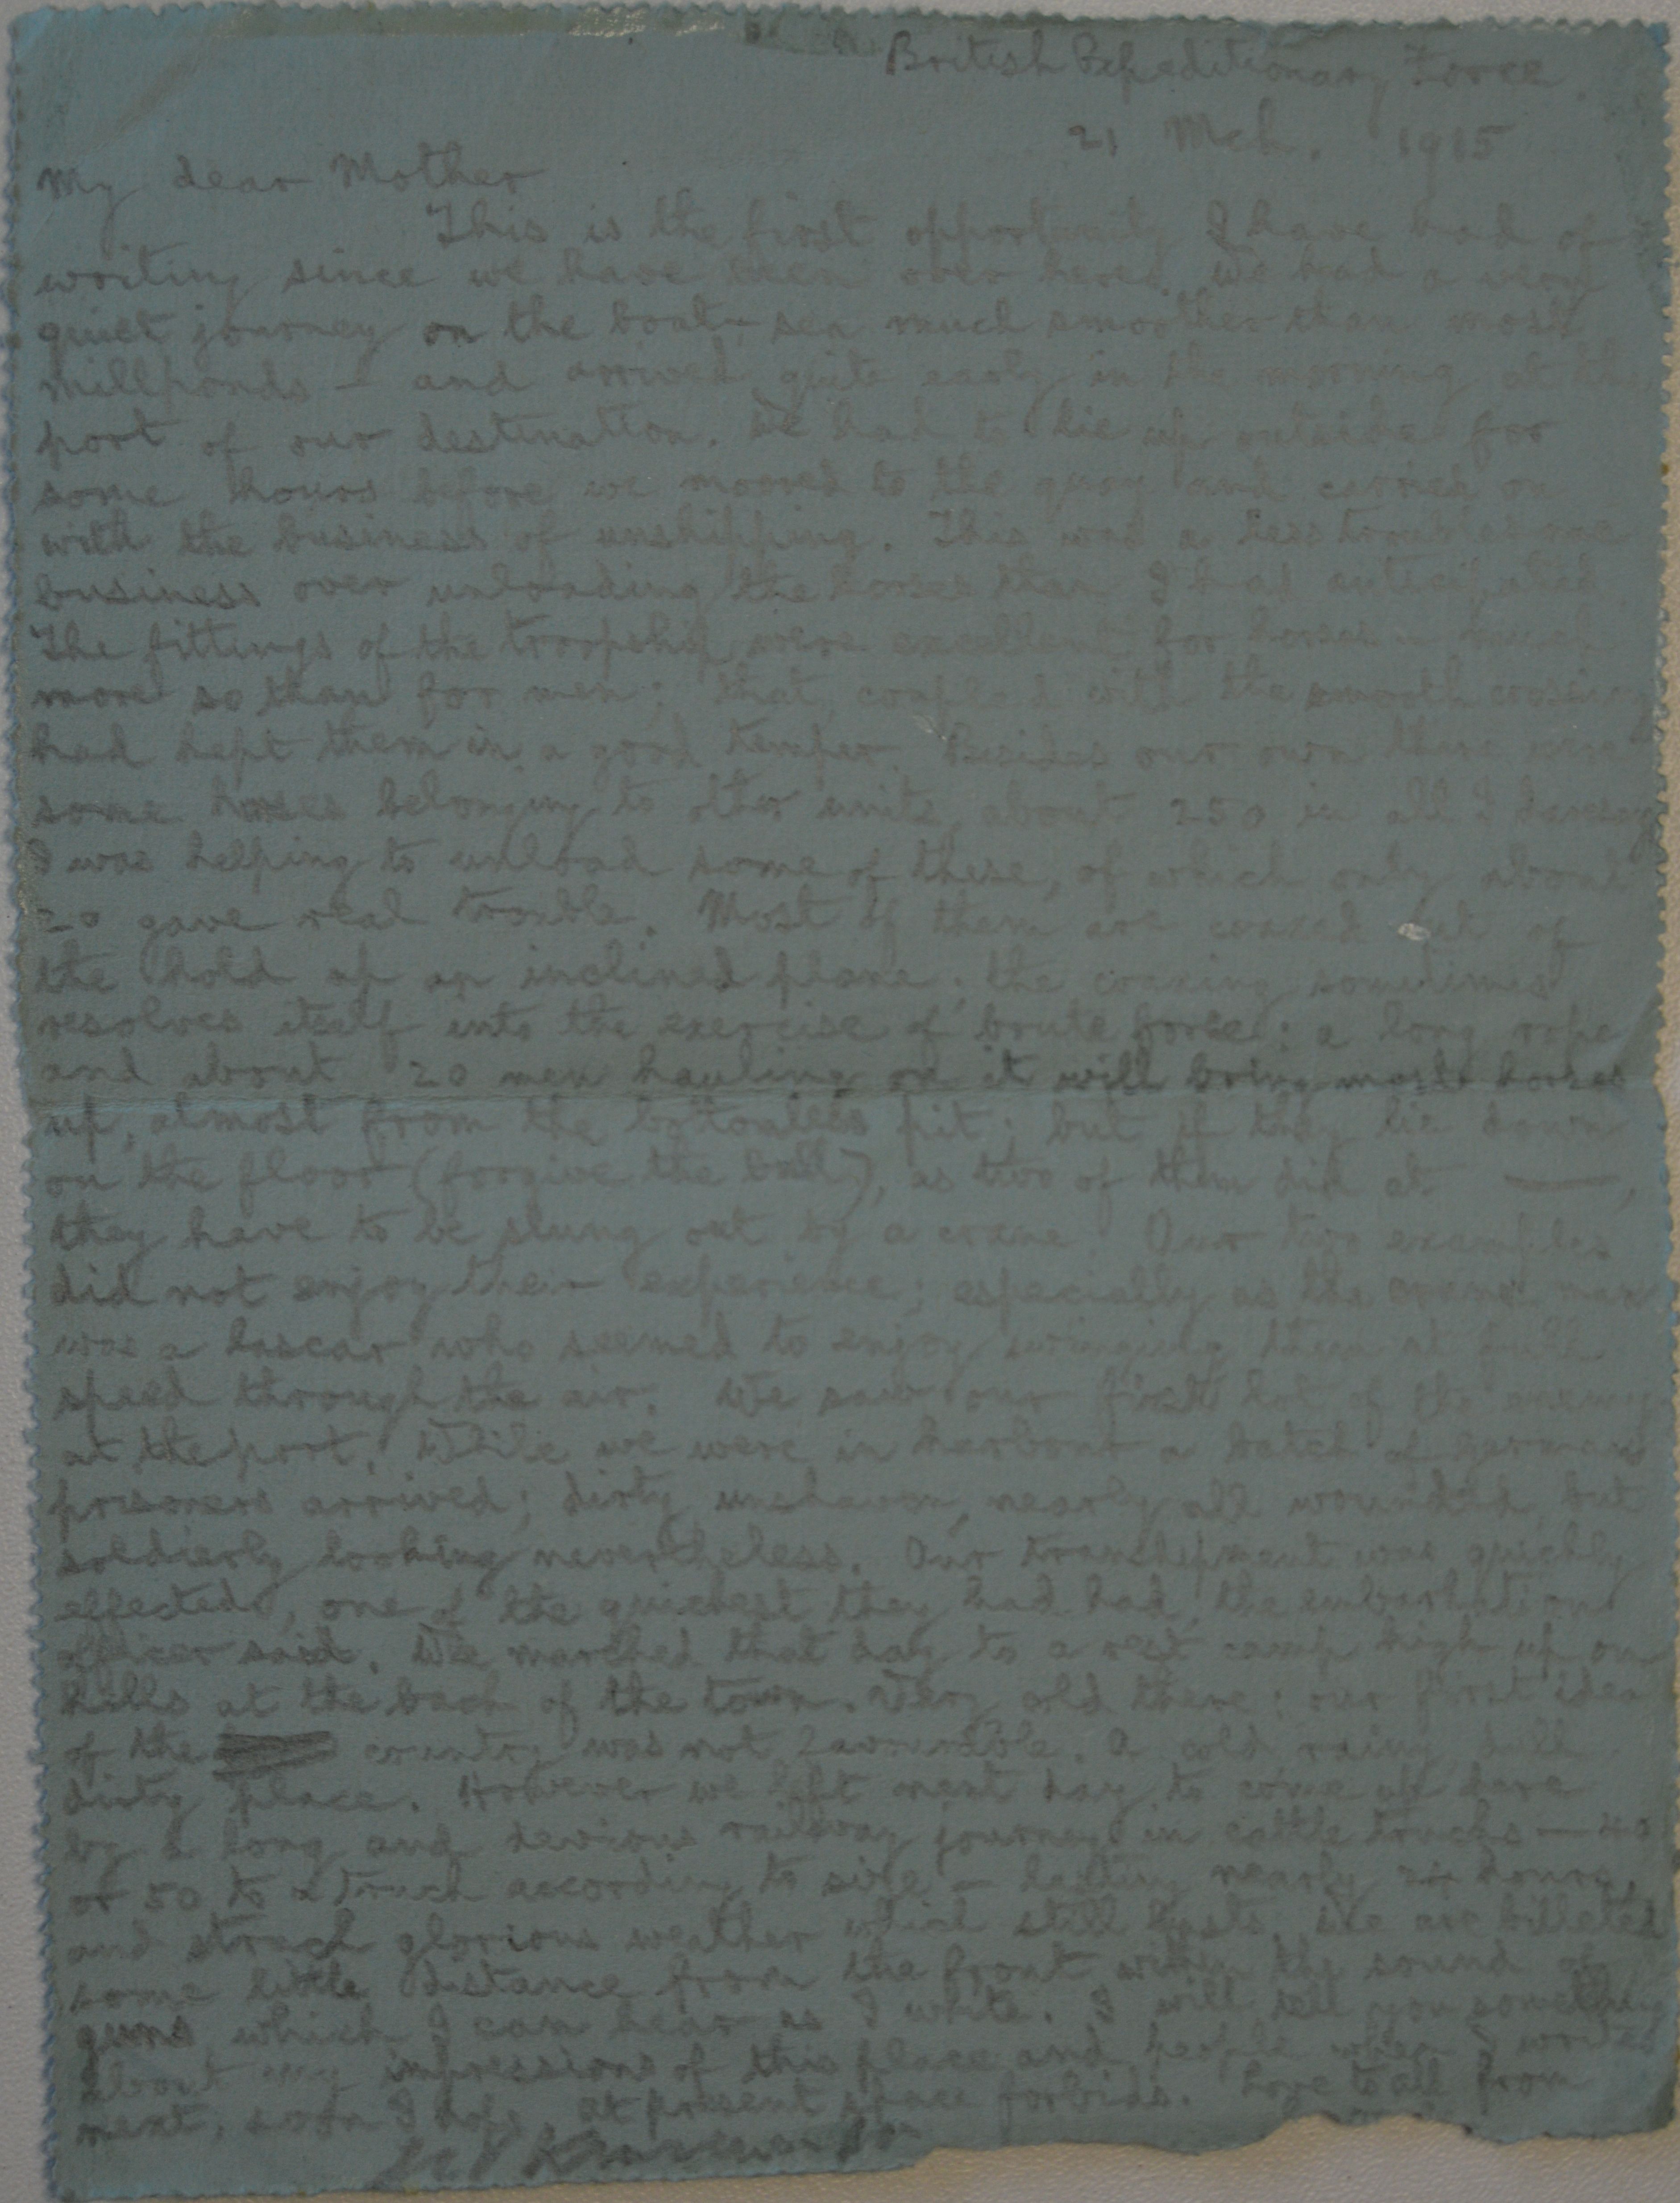 British Expeditionary Force
21 Mch. 1915
My dear Mother
This is the first opportunity I have had of
writing since we have been over here. We had a very
quiet journey on the boat – sea much smoother than most
millponds – and arrived quite early in the morning at the
port of our destination. We had to lie up outside for
some hours before we moored to the quay and carried on
with the business of unshipping. This was a less troublesome
business over unloading the horses than I had anticipated
The fittings of the troopship were excellent for horses – much
more so than for men; that, coupled with the smooth crossing
had kept them in a good temper. Besides our own there were
some horses belonging to other units, about 250 in all I daresay
I was helping to unload some of these, of which only about
20 gave real trouble. Most of them are coaxed out of
the hold up an inclined plane; the coaxing sometimes
resolves itself into the exercise of brute force: a long rope
and about 20 men hauling on it will bring most horses
up, almost from the bottomless pit; but if they lie down
on the floor (forgive the bull), as two of them did at ——,
they have to be slung out by a crane. Our two examples
did not enjoy their experience; especially as the crane man
was a lascar who seemed to enjoy swinging them at full
speed through the air. We saw our first lot of the enemy
at the port. While we were in harbour a batch of German
prisoners arrived; dirty unshaven, nearly all wounded, but
soldierly looking nevertheless. Our transhipment was quickly
effected, one of the quickest they had had, the embarkation
officer said. We marched that day to a rest camp high up on
hills at the back of the town. Very old there; our first idea
of the country was not favourable. A cold rainy dull
dirty place. However we left next day to come up here
by a long and devious railway journey in cattle trucks – 40
or 50 to a truck according to size – lasting nearly 24 hours,
and struck glorious weather which still lasts. We are billeted
some little distance from the front within the sound of
guns which I can hear as I write. I will tell you something
about my impressions of this place and people when I write
next, soon I hope, at present space forbids. Love to all from